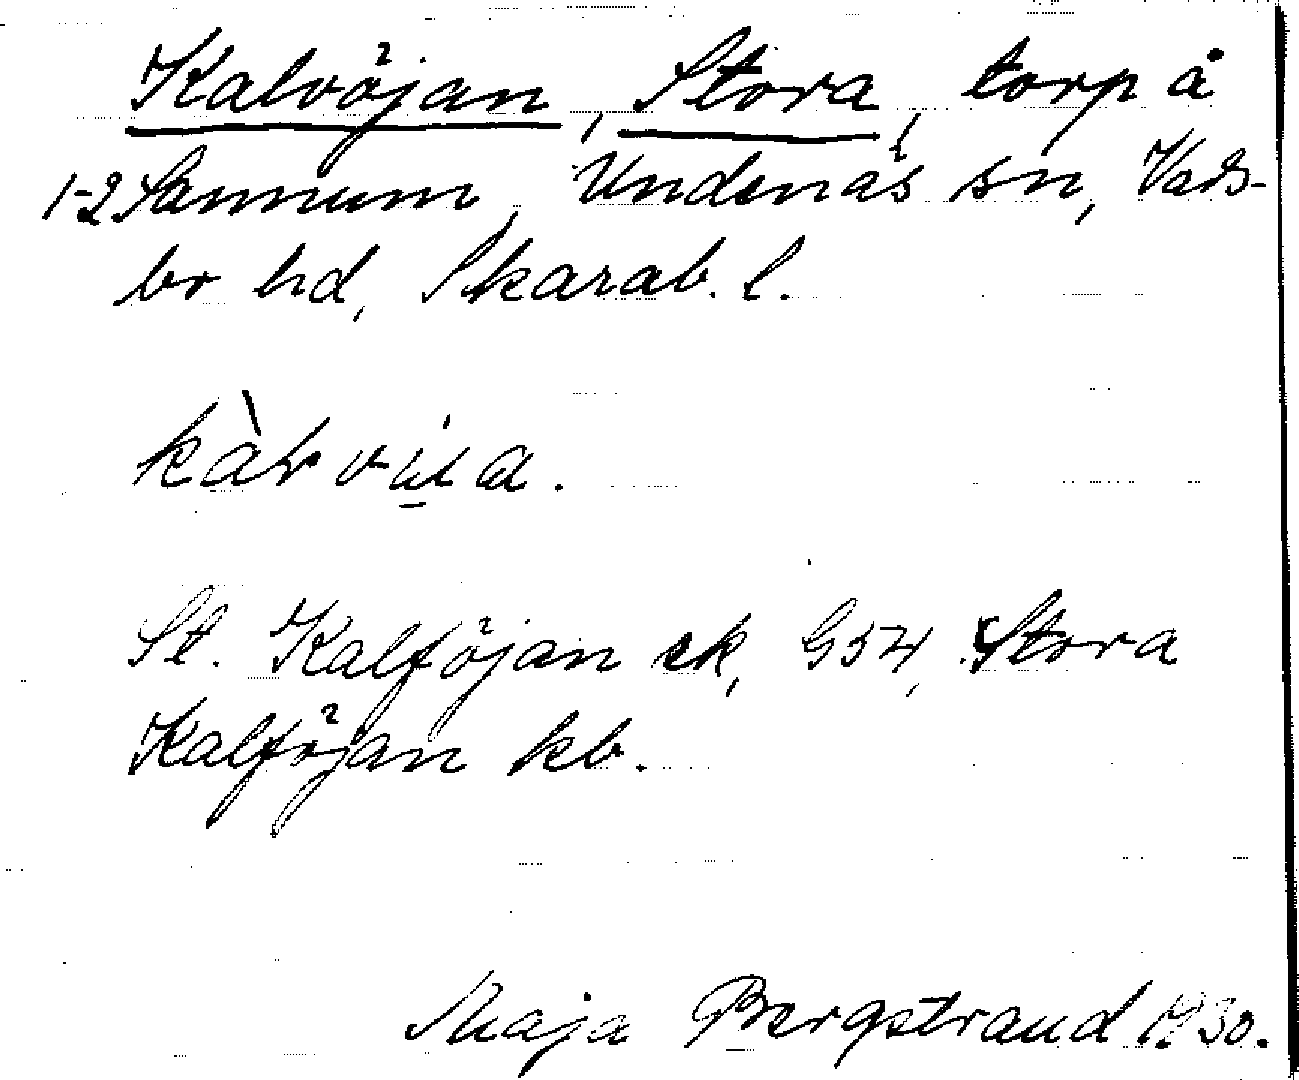 Kalvöjan, Stora, torp å
1-2 Sannum, Undenäs sn, Vads-
bo hd, Skarab. l.
St. Kalföjan ek, G54, Stora
Kalföjan kb.
Maja Bergstrand 1930.